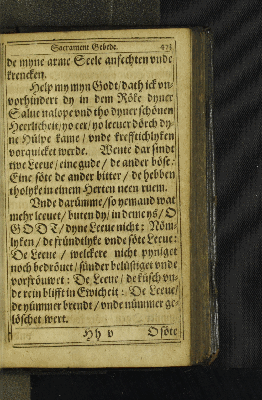 Sacrament Gebede. 421
de myne arme Seele anfechten vnde
krencken.
Help my myn God / dath ick vn-
vorhindert dy in dem Röke dyner
Salue nalope vnd tho dyner schönen
Heerlicheit / yo eer / yo leeuer dörch dy-
ne Hülpe kame / vnde krefftichlyken
vorquicket werde. Wente dar sindt
twe Leeue / eine gude / de ander böse:
Eine söte de ander bitter / de hebben
tholyke in einem Herten neen ruem.
Vnde darümme / so yemand wat
mehr leeuet / buten dy / in deme ys / O
GODT / dyne Leeue nicht: Nöm-
lyken / de fründtlyke vnde söte Leeue:
De Leeue / welckere nicht pyniget
noch bedröuet / sünder belüstiget vnde
vorfröuwet: De Leeue / de küsch vn-
de rein blifft in Ewicheit: De Leeue /
de yümmer brendt / vnde nümmer ge-
löschet wert.
Hh v O söte